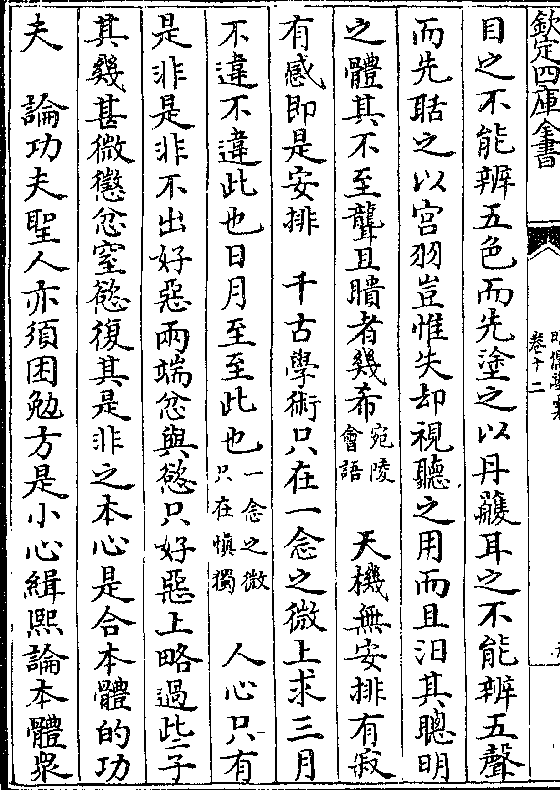 欽定四庫全書
卷十二
目之不能辨五色而先塗之以丹雘耳之不能辨五聲
而先聒之以宫羽豈惟失却視聽之用而且汨其聰明
之體其不至聾且瞶者幾希宛陵會語　天機無安排有寂
有感即是安排　千古學術只在一念之微上求三月
不違不違此也日月至至此也一念之微只在慎獨　人心只有
是非是非不出好惡兩端忿與慾只好惡上略過些子
其幾甚微懲忿窒慾復其是非之本心是合本體的功
夫　論功夫聖人亦須困勉方是小心緝熙論本體衆